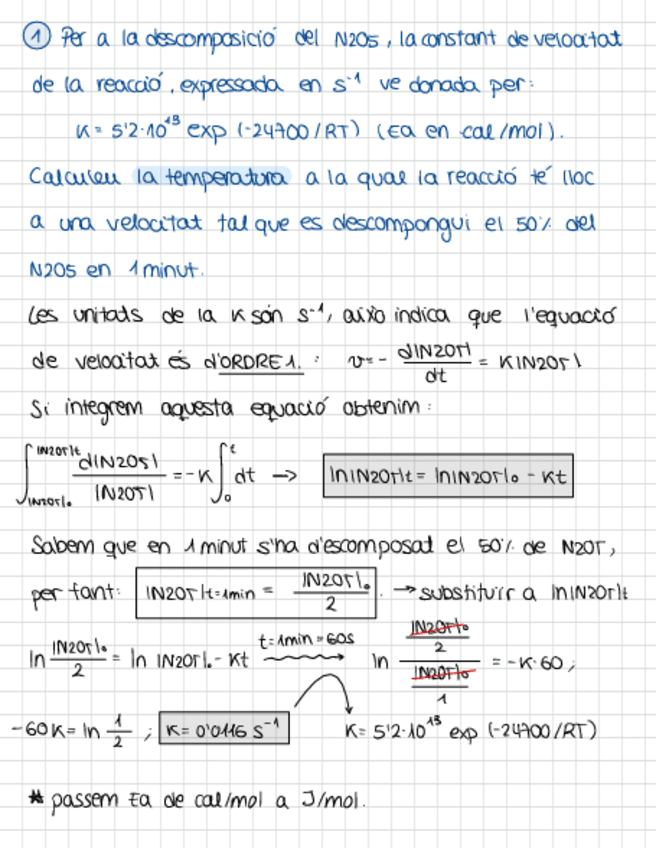 ① Per a la descomposició del N2O5, la constant de velocitat
de la reacció, expressada en s⁻¹ ve donada per:
K = 5'2·10¹³ exp (-24700/RT) (Ea en cal/mol).
Calculeu la temperatura a la qual la reacció té lloc
a una velocitat tal que es descompongui el 50% del
N2O5 en 1 minut.
Les unitats de la K són s⁻¹, això indica que l'equació
de velocitat és d'ORDRE 1. : v = - d|N2O5| / dt = K|N2O5|
Si integrem aquesta equació obtenim:
∫ |N2O5|o |N2O5|t d|N2O5| / |N2O5| = -K ∫ 0 t dt → ln|N2O5|t = ln|N2O5|o - Kt
Sabem que en 1 minut s'ha d'escomposat el 50% de N2O5,
per tant: |N2O5|t=1min = |N2O5|o / 2 . → substituir a ln|N2O5|t
ln |N2O5|o / 2 = ln |N2O5|o - Kt t=1min=60s ln |N2O5|o / 2 / |N2O5|o / 1 = -K·60 ;
-60K = ln 1/2 ; K = 0'0116 s⁻¹ K = 5'2·10¹³ exp (-24700/RT)
* passem Ea de cal/mol a J/mol.